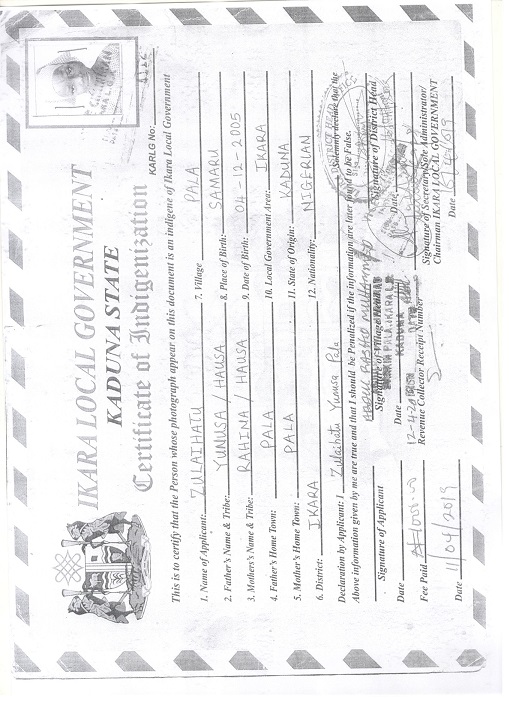 IKARA LOCAL GOVERNMENT
KADUNA STATE
Certificate of Indigenization
KARLG No:
This is to certify that the Person whose photograph appear on this document is an indigene of Ikara Local Government
1. Name of Applicant: ZULAIHATU
7. Village PALA
2. Father's Name & Tribe: YUNUSA / HAUSA
8. Place of Birth: SAMARU
3. Mothers's Name & Tribe: RAHINA / HAUSA
9. Date of Birth: 04-12-2005
4. Father's Home Town: PALA
10. Local Government Area: IKARA
5. Mother's Home Town: PALA
11. State of Origin: KADUNA
6. District: IKARA
12. Nationality: NIGERIAN
Declaration by Applicant: I Zulaihatu Yunusa Pala declare that the
Above information given by me are true and that I should be Penalized if the information are later found to be False.
Signature of Applicant
Signature of Village Head
Signature of District Head
Date
Date
Date
Fee Paid
Revenue Collector Receipt Number
Signature of Secretary/Sole Administrator/
Chairman IKARA LOCAL GOVERNMENT
Date 11/04/2019
Date